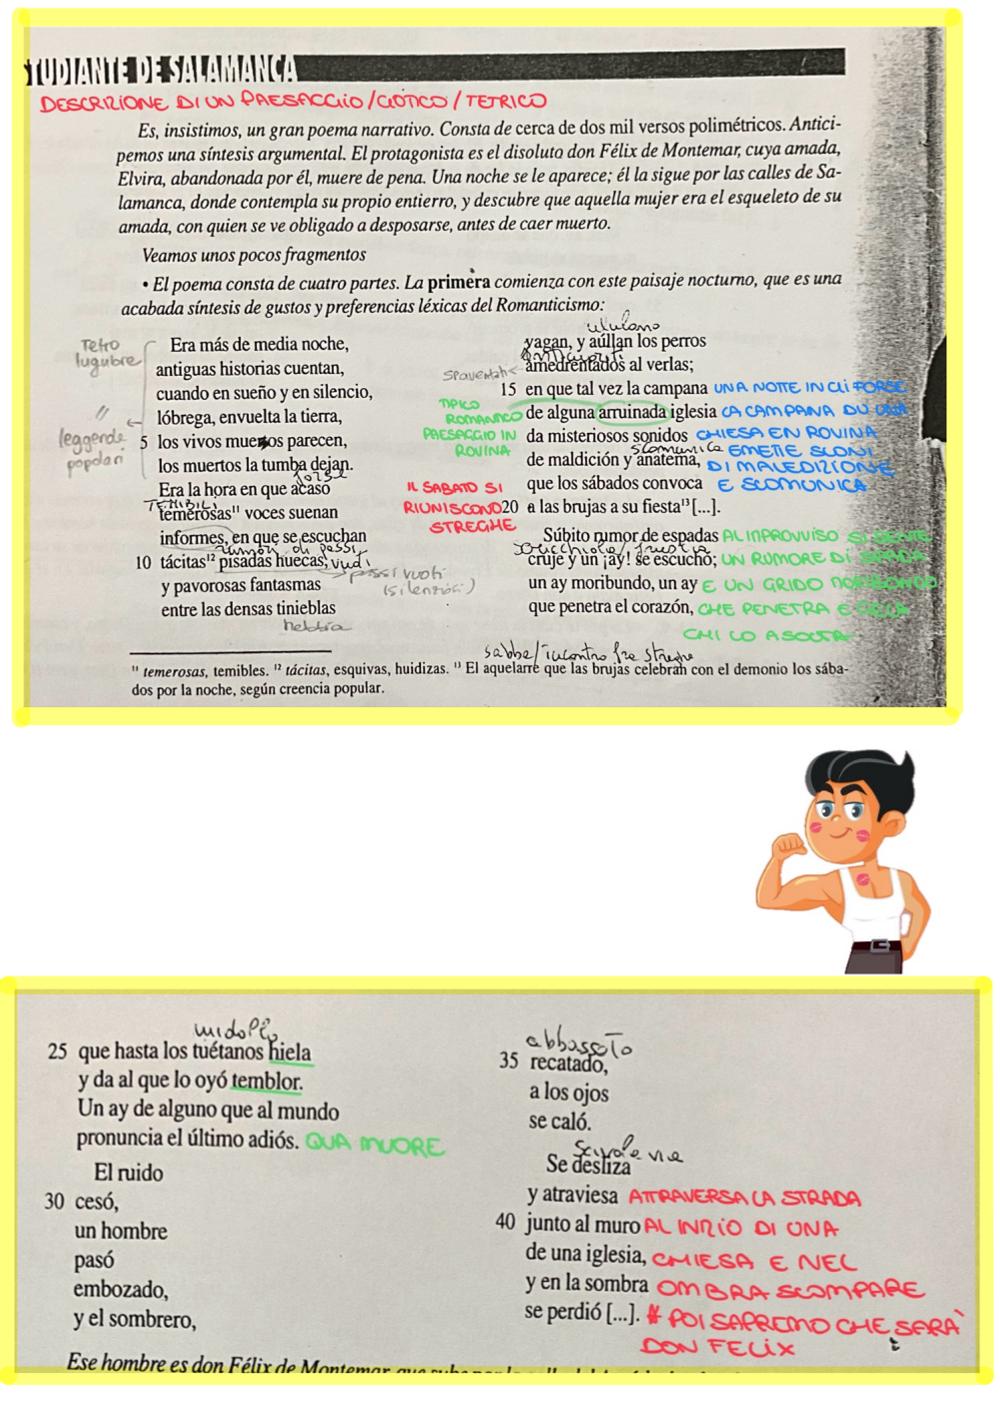 TUDIANTE DE SALAMANCA
DESCRIZIONE DI UN PAESAGGIO/GOTICO/TETRICO
Es, insistimos, un gran poema narrativo. Consta de cerca de dos mil versos polimétricos. Antici-
pemos una síntesis argumental. El protagonista es el disoluto don Félix de Montemar, cuya amada,
Elvira, abandonada por él, muere de pena. Una noche se le aparece; él la sigue por las calles de Sa-
lamanca, donde contempla su propio entierro, y descubre que aquella mujer era el esqueleto de su
amada, con quien se ve obligado a desposarse, antes de caer muerto.
Veamos unos pocos fragmentos
• El poema consta de cuatro partes. La primera comienza con este paisaje nocturno, que es una
acabada síntesis de gustos y preferencias léxicas del Romanticismo:
Tetro
lugubre
Era más de media noche,
antiguas historias cuentan,
cuando en sueño y en silencio,
lóbrega, envuelta la tierra,
"
leggende
popolari
5 los vivos muertos parecen,
los muertos la tumba dejan.
forse
Era la hora en que acaso
TEMIBILI
temerosas¹¹ voces suenan
informes, en que se escuchan
rumori di passi
10 tácitas¹² pisadas huecas, vuoti
passi vuoti
(silenziosi)
y pavorosas fantasmas
entre las densas tinieblas
nebbia
ululano
vagan, y aúllan los perros
spaventati
amedrentados al verlas;
15 en que tal vez la campana UNA NOTTE IN CUI FORSE
TIPICO
ROMANTICO
PAESAGGIO IN
ROVINA
de alguna arruinada iglesia LA CAMPANA DI UNA
da misteriosos sonidos CHIESA EN ROVINA
scomunica EMETTE SUONI
de maldición y anatema, DI MALEDIZIONE
que los sábados convoca E SCOMUNICA
IL SABATO SI
RIUNISCONO
STREGHE
20 a las brujas a su fiesta¹³ [...].
Súbito rumor de espadas AL IMPROVVISO SI SENTE
cruje y un ¡ay! se escuchó; UN RUMORE DI SPADA
un ay moribundo, un ay E UN GRIDO MORIBONDO
que penetra el corazón, CHE PENETRA E GELA
CHI LO ASCOLTA
sabba/incontro fra streghe
¹¹ temerosas, temibles. ¹² tácitas, esquivas, huidizas. ¹³ El aquelarre que las brujas celebran con el demonio los sába-
dos por la noche, según creencia popular.
midollo
25 que hasta los tuétanos hiela
y da al que lo oyó temblor.
Un ay de alguno que al mundo
pronuncia el último adiós. QUA MUORE
El ruido
30 cesó,
un hombre
pasó
embozado,
y el sombrero,
abbassato
35 recatado,
a los ojos
se caló.
scivola via
Se desliza
y atraviesa ATTRAVERSA LA STRADA
40 junto al muro AL INIZIO DI UNA
de una iglesia, CHIESA E NEL
y en la sombra OMBRA SCOMPARE
se perdió [...]. # POI SAPREMO CHE SARÀ
DON FELIX
Ese hombre es don Félix de Montemar